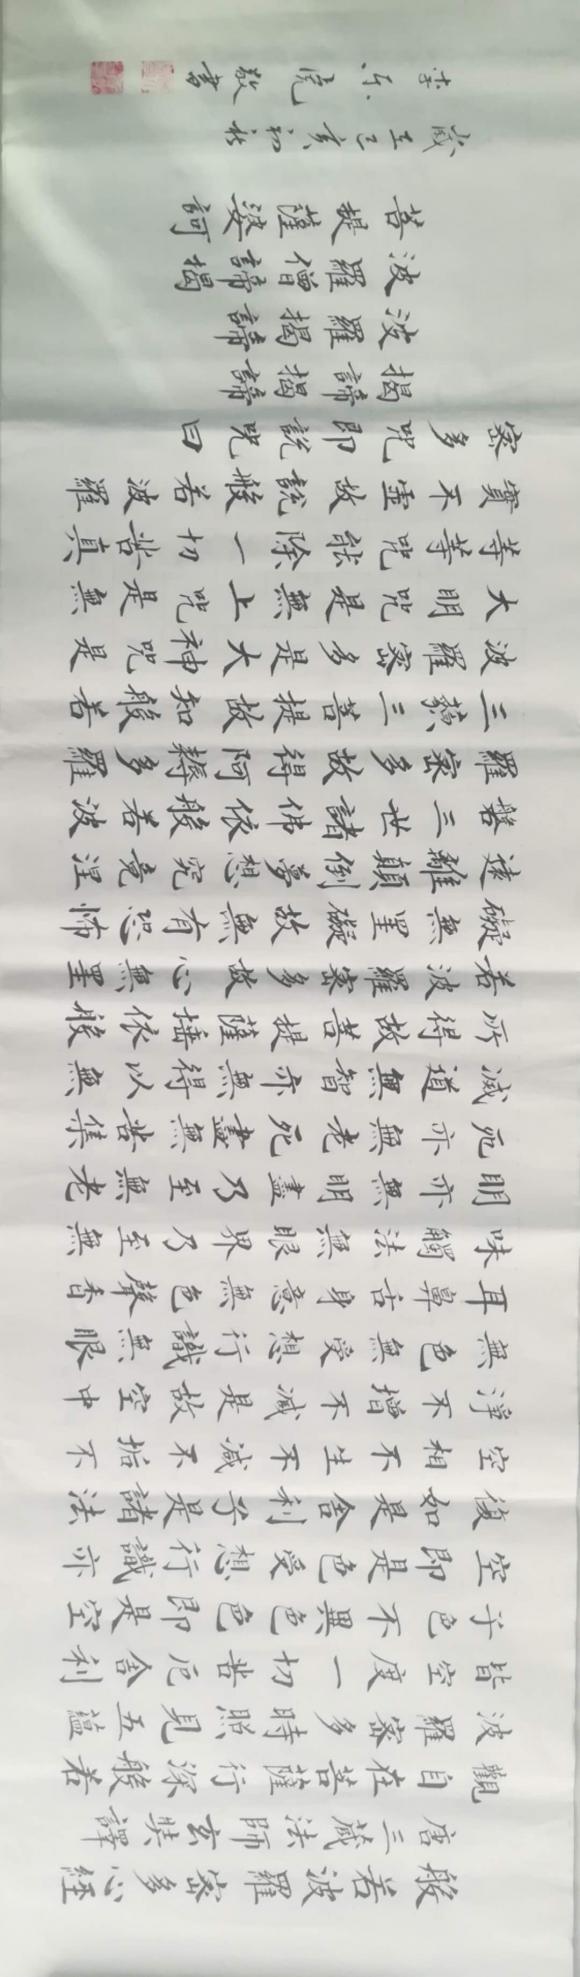 般若波羅蜜多心經
唐三藏法師玄奘譯
觀自在菩薩行深般若
波羅蜜多時照見五蘊
皆空度一切苦厄舍利
子色不異色色即是空
空即是色受想行識亦
復如是舍利子是諸法
空相不生不滅不垢不
淨不增不減是故空中
無色無受想行識無眼
耳鼻舌身意無色聲香
味觸法無眼界乃至無
明亦無明盡乃至無老
死亦無老死盡無苦集
滅道無智亦無得以無
所得故菩提薩埵依般
若波羅蜜多故心無罣
礙無罣礙故無有恐怖
遠離顛倒夢想究竟涅
磐三世諸佛依般若波
羅蜜多故得阿耨多羅
三藐三菩提故知般若
波羅蜜多是大神咒是
大明咒是無上咒是無
等等咒能除一切苦真
實不虛故說般若波羅
蜜多咒即說咒曰
揭諦揭諦
波羅揭諦
波羅僧諦揭
菩提薩婆訶
歲在己亥初秋
敬書